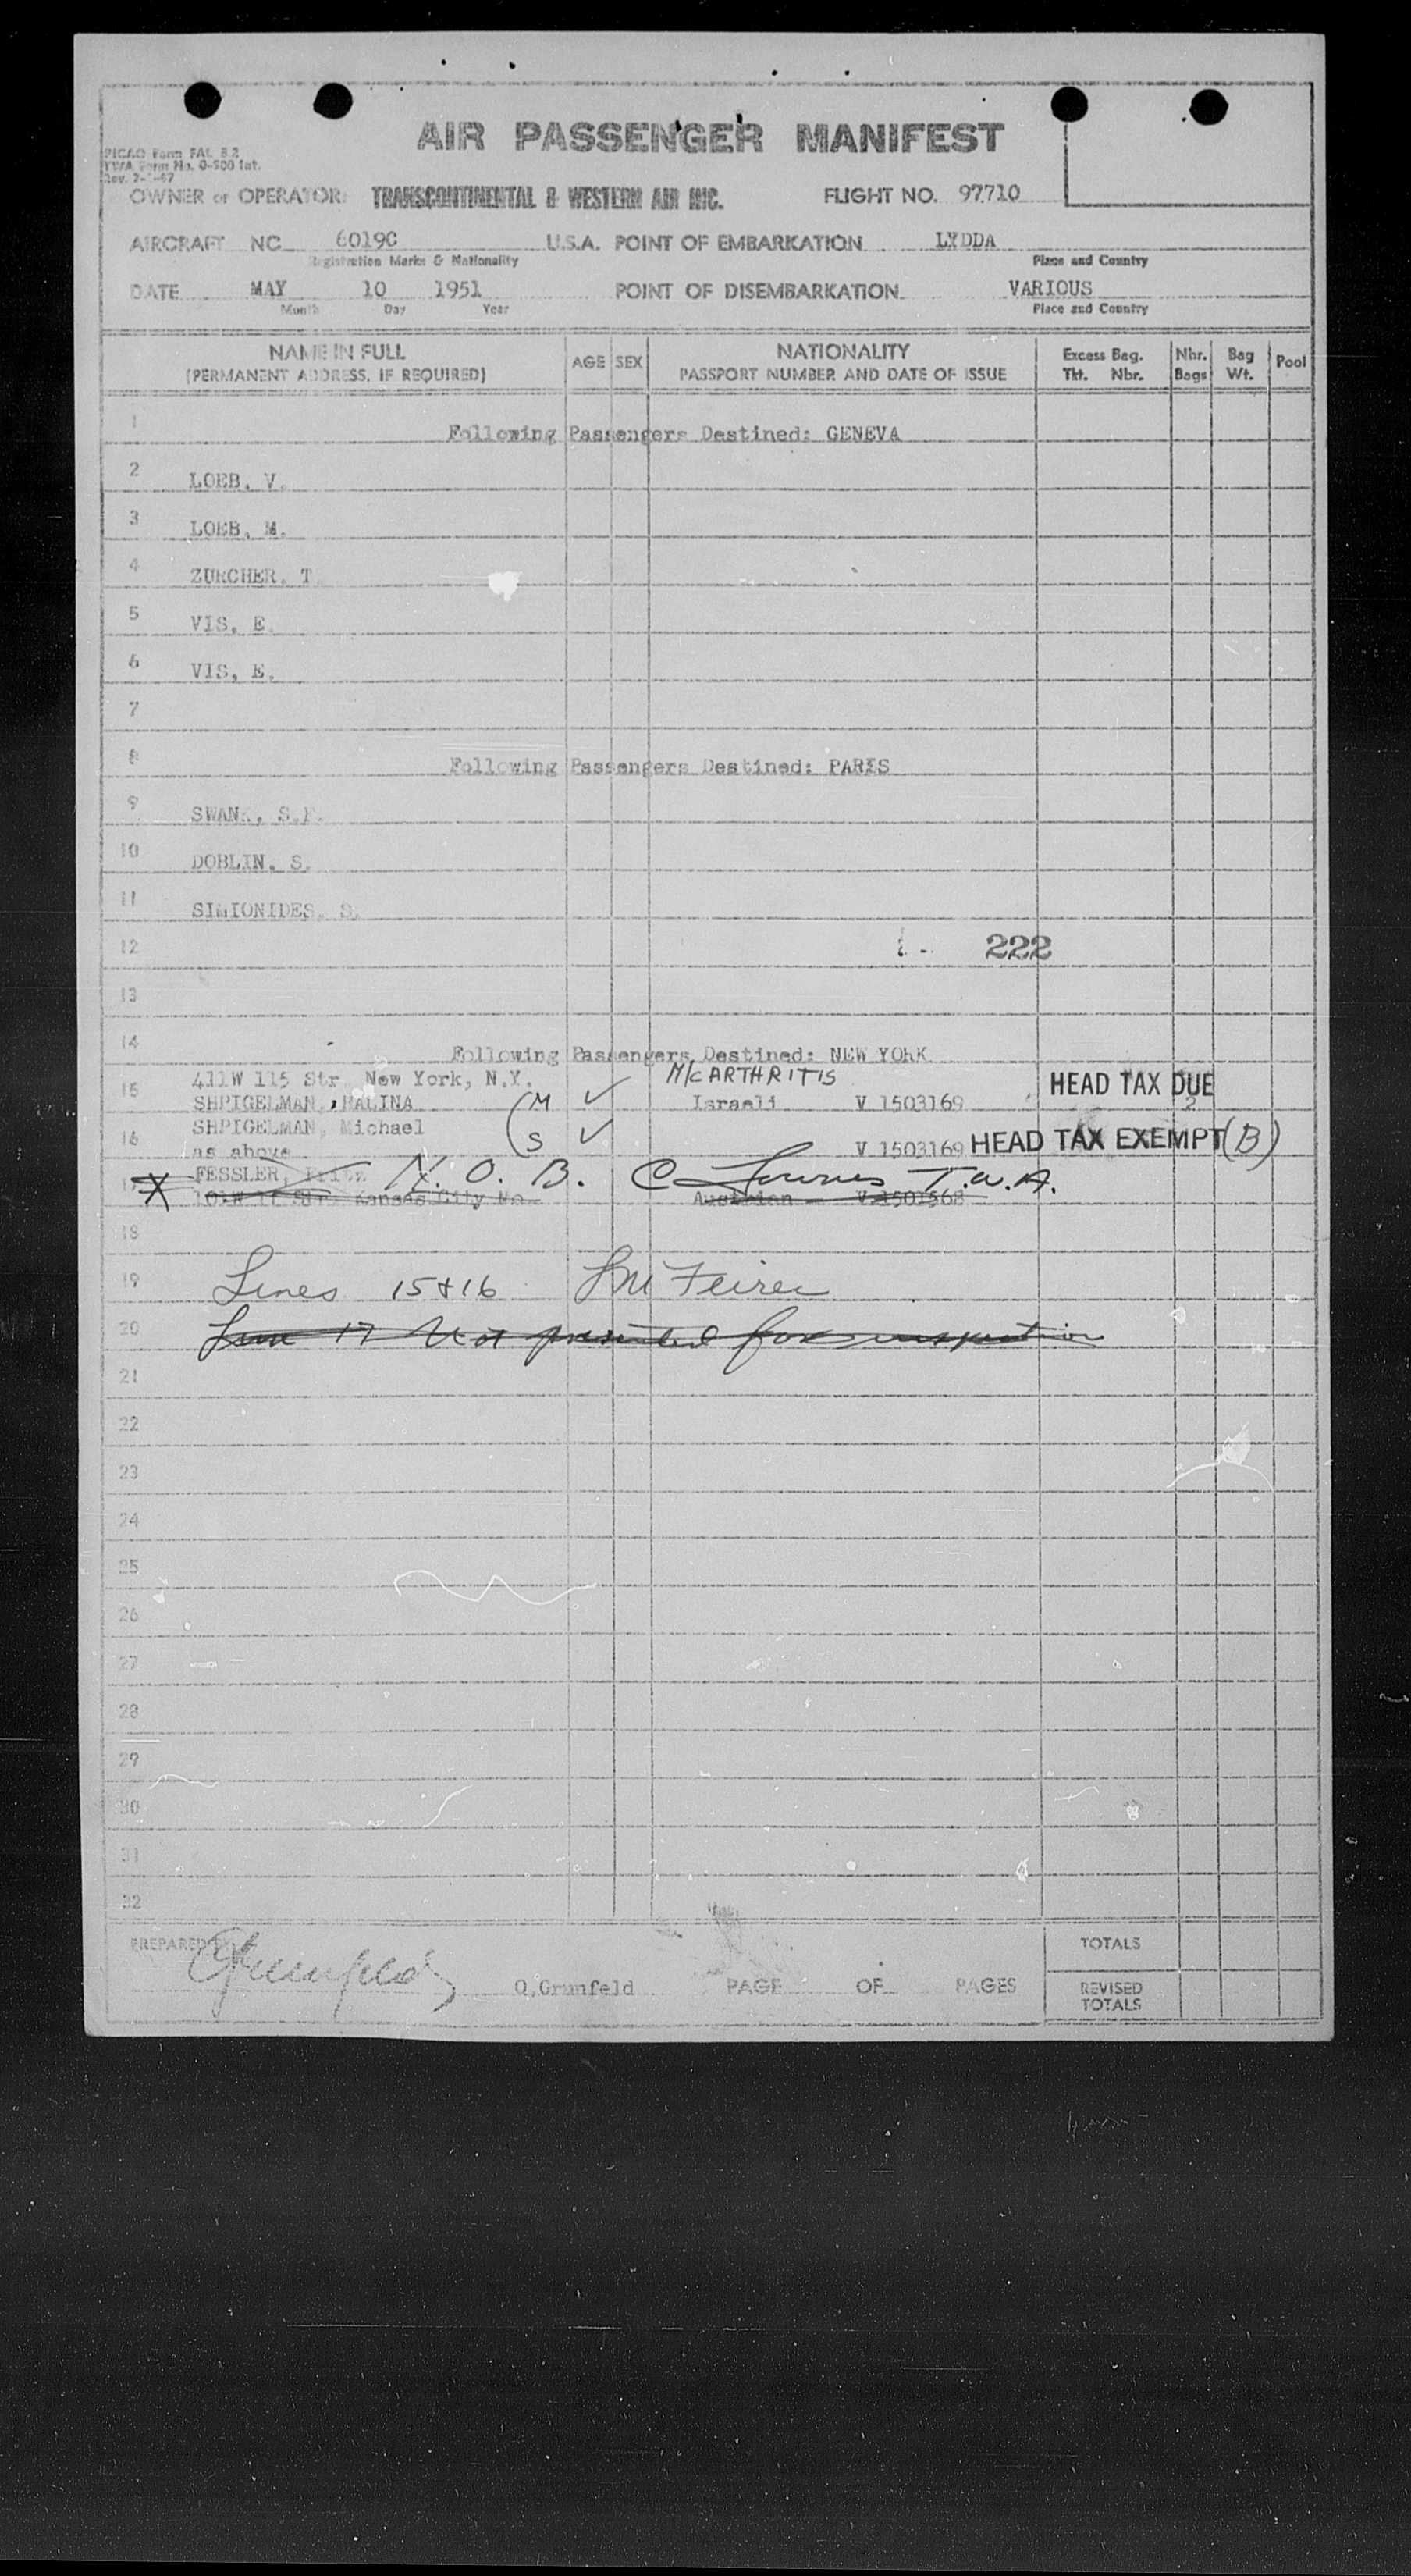 AIR PASSENGER MANIFEST
PICAO Form FAL 8.2
TWA Form No. O-500 Int.
Rev. 7-1-47
OWNER or OPERATOR: TRANSCONTINENTAL & WESTERN AIR INC. FLIGHT NO. 97710
AIRCRAFT NC 6019C U.S.A. POINT OF EMBARKATION LYDDA
Registration Marks & Nationality Place and Country
DATE MAY 10 1951 POINT OF DISEMBARKATION VARIOUS
Month Day Year Place and Country
NAME IN FULL AGE SEX NATIONALITY Excess Bag. Nbr. Bag Pool
(PERMANENT ADDRESS, IF REQUIRED) PASSPORT NUMBER AND DATE OF ISSUE Tkt. Nbr. Bags Wt.
1 Following Passengers Destined: GENEVA
2 LOEB, V.
3 LOEB, M.
4 ZURCHER, T.
5 VIS, E.
6 VIS, E.
7
8 Following Passengers Destined: PARIS
9 SWANK, S.F.
10 DOBLIN, S.
11 SIMIONIDES, S.
12 222
13
14 Following Passengers Destined: NEW YORK
411W 115 Str. New York, N.Y. M/C ARTHRITIS HEAD TAX DUE
15 SHPIGELMAN, HALINA (M ✓ Israeli V 1503169 2
16 SHPIGELMAN, Michael (S ✓
as above V 1503169 HEAD TAX EXEMPT (B)
X 17 FESSLER, Fritz N. O. B. C T.W.A.
Kansas City Mo. Austrian
18
19 Lines 15 & 16
20 Line 17 Not presented for inspection
21
22
23
24
25
26
27
28
29
30
31
32
PREPARED BY Grunfeld O.Grunfeld PAGE OF PAGES TOTALS
REVISED TOTALS